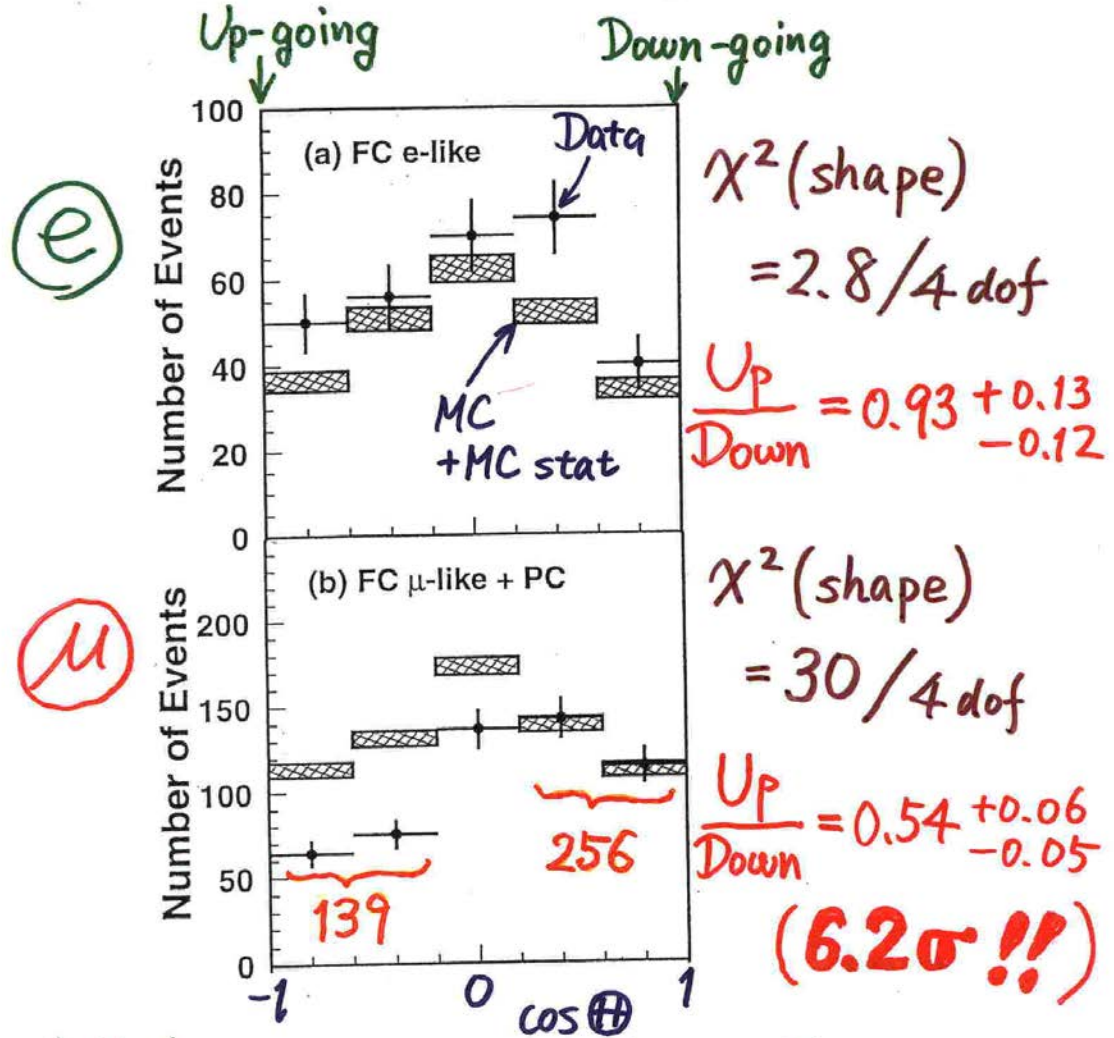 Up-going
Down-going
100
80
60
40
20
0
Number of Events
(a) FC e-like
Data
MC
+MC stat
e
χ² (shape)
= 2.8 / 4 dof
Up
Down
= 0.93 +0.13
−0.12
200
150
100
50
0
Number of Events
(b) FC μ-like + PC
139
256
μ
χ² (shape)
= 30 / 4 dof
Up
Down
= 0.54 +0.06
−0.05
(6.2σ !!)
-1
0
1
cos Θ